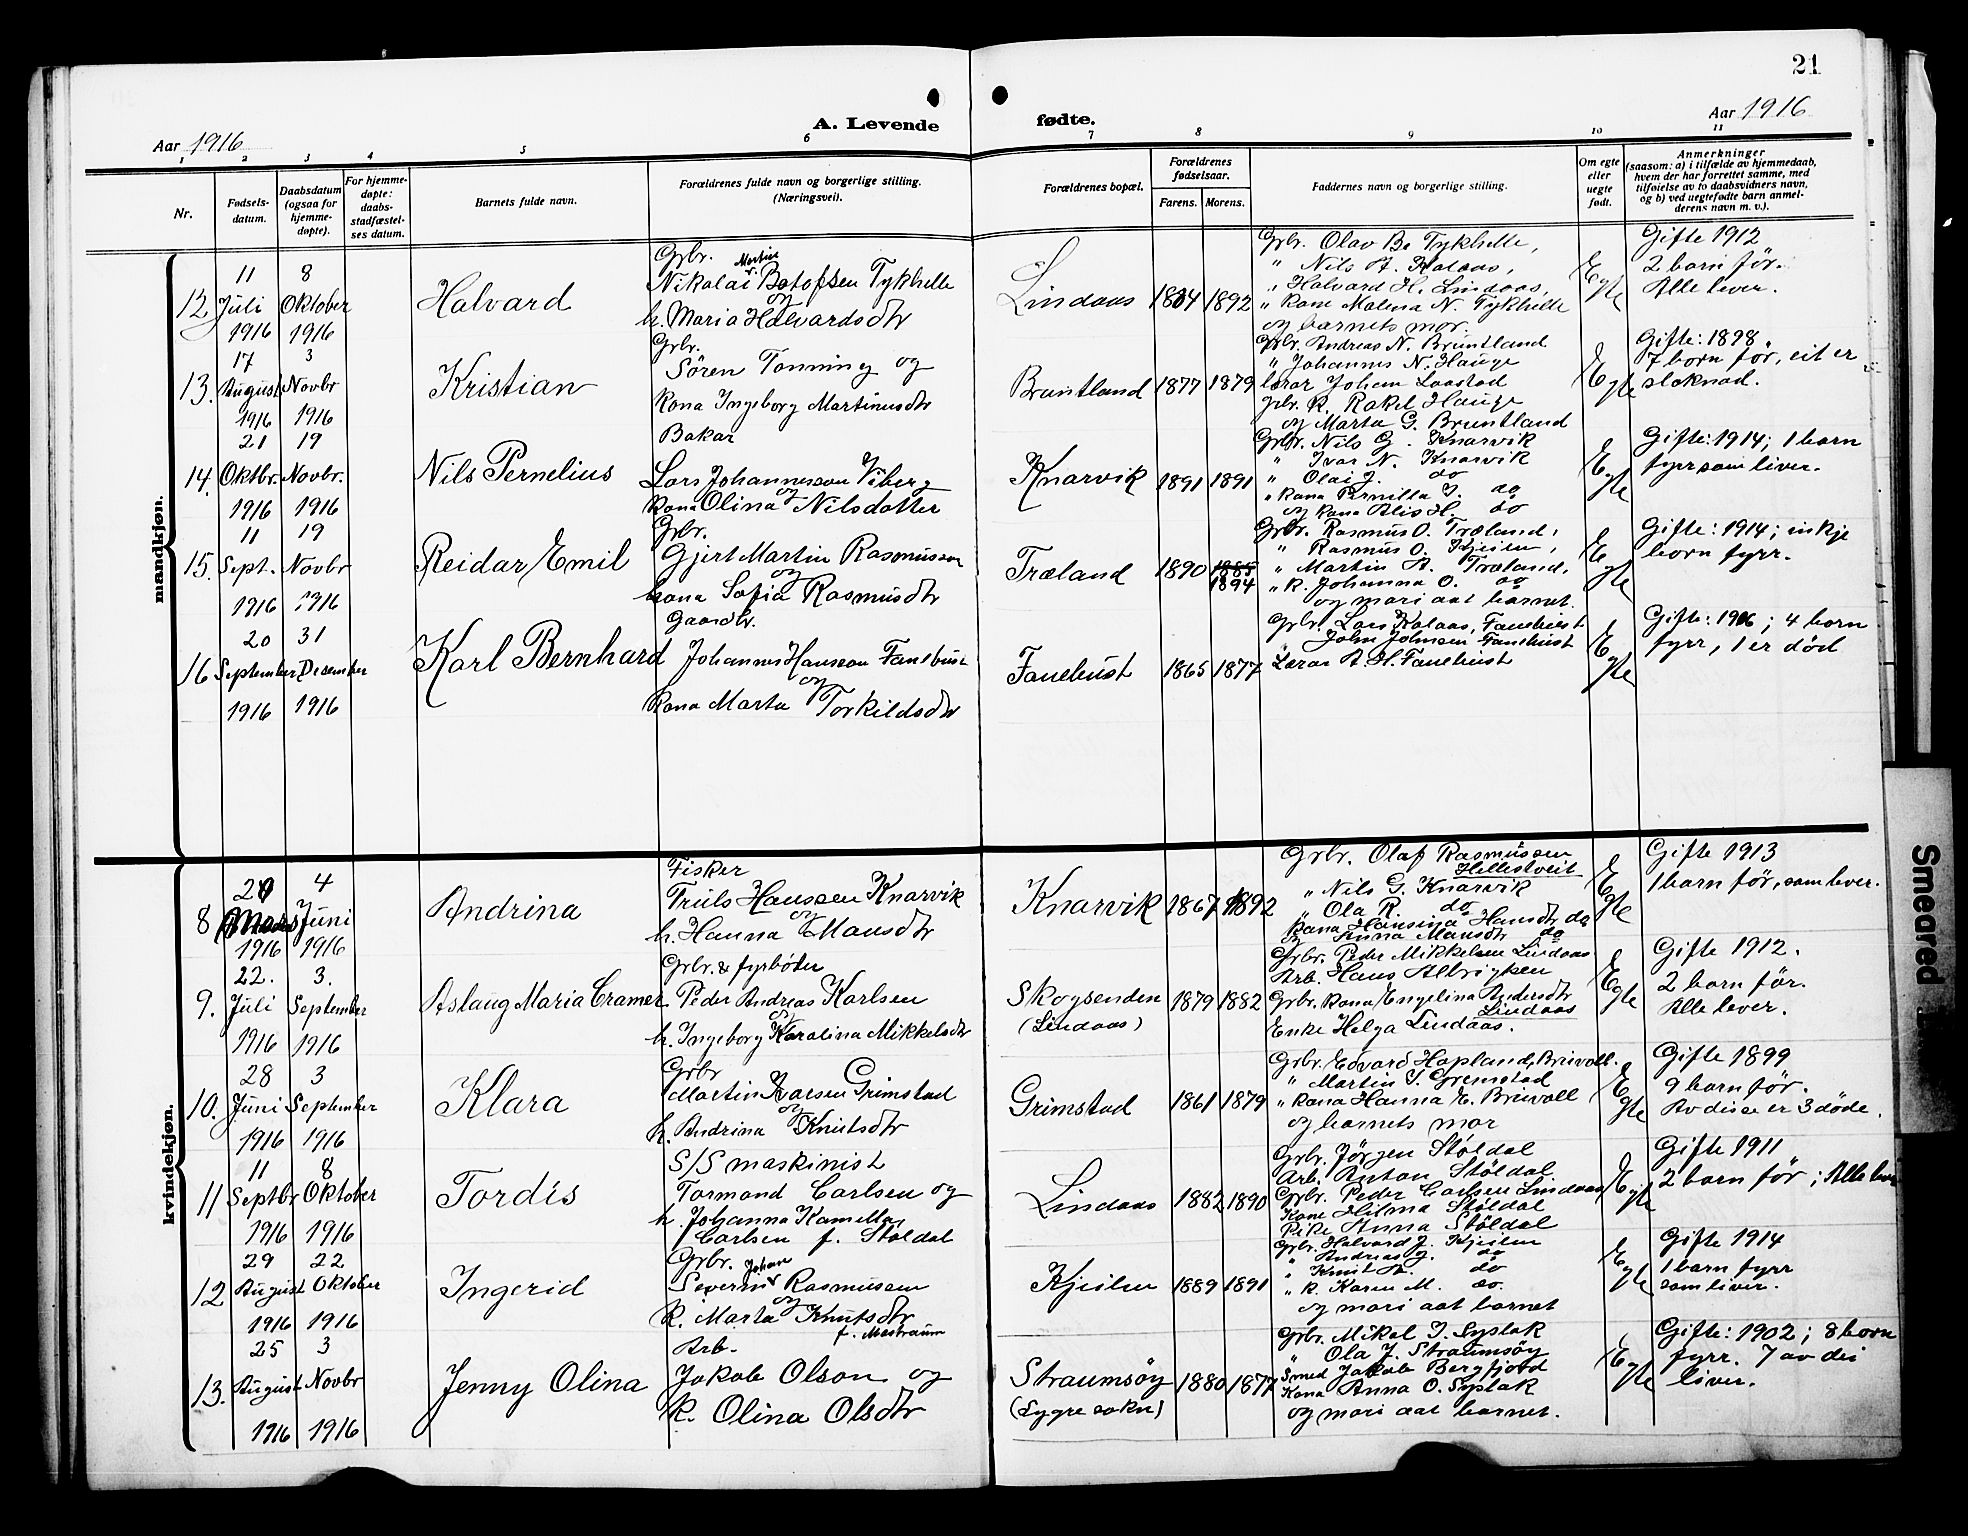 21
Aar 1916
A. Levende
fødte.
Aar 1916
1 2 3 4 5 6 7 8 9 10 11
Nr.
Fødsels-
datum.
Daabsdatum
(ogsaa for
hjemme-
døpte).
For hjemme-
døpte:
daabs-
stadfæstel-
ses datum.
Barnets fulde navn.
Forældrenes fulde navn og borgerlige stilling.
(Næringsvei).
Forældrenes bopæl.
Forældrenes
fødselsaar.
Farens. Morens.
Faddernes navn og borgerlige stilling.
Om egte
eller
uegte
født.
Anmerkninger
(saasom: a) i tilfælde av hjemmedaab,
hvem der har forrettet samme, med
tilføielse av to daabsvidners navn,
og b) ved uegtefødte barn anmel-
derens navn m. v.).
mandkjøn.
12.
11
Juli
1916
8
Oktober
1916
Halvard
Grbr.
Martin
Nikolai v Botofsen Tykhelle
og
h. Maria Halvardsdtr
Lindaas
1884 1892
Grbr. Olav Bo Tykhelle,
" Nils A. Kolaas,
" Halvard H. Lindaas,
" Kone Malena N. Tykhelle
og barnets mor.
Egte
Gifte 1912
2 barn før.
Alle lever.
13.
17
August
1916
3
Novbr
1916
Kristian
Grbr.
Søren Tonning og
Kona Ingeborg Martinusdtr
Bruntland
1877 1879
Grbr. Andreas N. Bruntland
" Johannes N. Hauge
lærar Johan Laastad
grbr. k. Rakel Hauge
og Marta G. Bruntland
Egte
Gifte: 1898.
7 born før, eit er
sloknad.
14.
21
Oktbr.
1916
19
Novbr.
1916
Nils Pernelius
Bakar
Lars Johannesson Viberg
og
kona Olina Nilsdotter
Knarvik
1891 1891
Grbr. Nils G. Knarvik
" Ivar N. Knarvik
" Olai J. do
" Kona Pernilla I. do
og kona Alis H. do
Egte
Gifte: 1914; 1 barn
fyrr som liver.
15.
11
Sept.
1916
19
Novbr
1916
Reidar Emil
Grbr.
Gjert Martin Rasmusson
og
kona Sofia Rasmusdtr
Træland
1890 1885
1894
Grbr. Rasmus O. Træland,
" Rasmus O. Kjeilen,
" Martin A. Træland,
" k. Johanna O. do
og mori aat barnet.
Egte
Gifte: 1914; inkje
born fyrr.
16
20
September
1916
31
Desember
1916
Karl Bernhard
Gaardbr.
Johannes Hansson Fanebust
og
Kona Marta Torkildsdtr
Fanebust
1865 1877
Grbr. Lars Kolaas, Fanebust
" John Johnsen Fanebust
Lærar A. H. Fanebust
Egte
Gifte: 1906; 4 born
fyrr, 1 er död
kvindekjøn.
8
Mars
1916
4
Juni
1916
Andrina
Fisker
Truls Hanssen Knarvik
og
h. Hanna Monsdtr
Knarvik
1867 1892
Grbr. Olaf Rasmussen
Hellestveit
" Nils G. Knarvik
" Ola R. do
Kona Hansina Hansdtr do
og Anna Mansdtr do
Egte
Gifte 1913
1 barn før, som lever.
9.
22.
Juli
1916
3.
September
1916
Aslaug Maria Cramer
Grbr. & fyrbøter
Peder Andreas Karlsen
og
h. Ingeborg Karolina Mikkelsdtr
Skogsenden
(Lindaas)
1879 1882
Grbr. Peder Mikkelsen Lindaas
Arb. Hans Albrigtsen
Grbr. kona Engelina Andersdtr
Lindaas
Enke Helga Lindaas.
Egte
Gifte 1912.
2 barn før.
Alle lever.
10.
28
Juni
1916
3
September
1916
Klara
Grbr
Martin Larsen Grimstad
og
h. Andrina Knutsdtr
Grimstad
1861 1879
Grbr. Edvard Hopland, Brivoll.
" Martin I. Gremstad
" Kona Hanna E. Brivoll
og barnets mor
Egte
Gifte 1899
9 barn før.
Av disse er 3 døde.
11
11
Septbr
1916
8
Oktober
1916
Tordis
S/S maskinist
Tormond Carlsen og
h. Johanna Kamella
Carlsen f. Støldal
Lindaas
1882 1890
Grbr. Jörgen Støldal
Arb. Anton Støldal
Grbr. Peder Carlsen Lindaas
Kone Hilma Støldal
Pike Anna Støldal
Egte
Gifte 1911
2 barn før; Alle lever
12
29
August
1916
22
Oktober
1916
Ingerid
Grbr. Johan
Severin v Rasmussen
og
k. Marta Knutsdtr
f. Mostraum
Kjeilen
1889 1891
Grbr. Halvard J. Kjeilen
" Andreas J. do
" Knut A. do
" k. Karen M. do.
og mori aat barnet
Egte
Gifte 1914
1 barn fyrr
som liver.
13.
25
August
1916
3
Novbr
1916
Jenny Olina
Arb.
Jakob Olson og
k. Olina Olsdtr
Straumsöy
(Lygre sokn)
1880 1877
Grbr. Mikal I. Syslak
" Ola J. Straumsöy
Smed Jakob Bergfjord
Kona Anna O. Syslak
og mori aat barnet.
Egte
Gifte: 1902; 8 born
fyrr. 7 av dei
liver.
Smeared